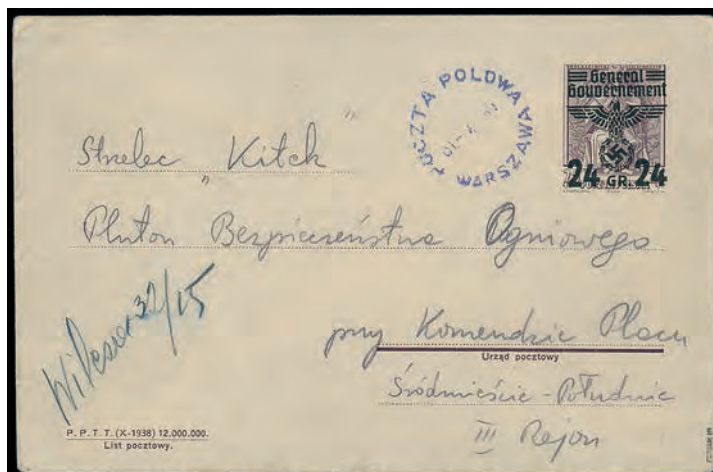 POCZTA POLOWA WARSZAWA
General
Gouvernement
24 GR. 24
Strzelec "Kitek"
Pluton Bezpieczeństwa Ogniowego
przy Komendzie Placu
Urząd pocztowy
Śródmieście-Południe
III Rejon
Wilcza 32/15
P. P. T. T. (X-1938) 12.000.000.
List pocztowy.